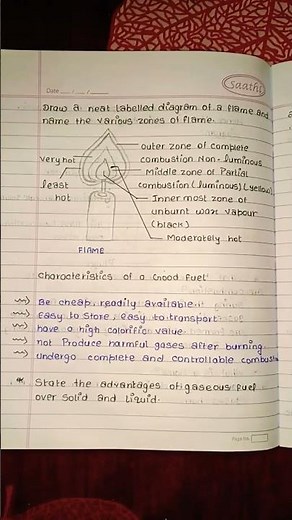 Date __/__/__
Saathi
Draw a neat labelled diagram of a flame and
name the various zones of flame.
outer zone of complete
very hot combustion Non-luminous
Middle zone of Partial
least combustion (luminous) (yellow)
hot Inner most zone of
unburnt wax vapour
(black)
Moderately hot
FLAME
characteristics of a Good fuel
Be cheap, readily available
Easy to store, easy to transport
have a high calorific value
not Produce harmful gases after burning
undergo complete and controllable combustion
State the advantages of gaseous fuel
over solid and liquid.
Page No.